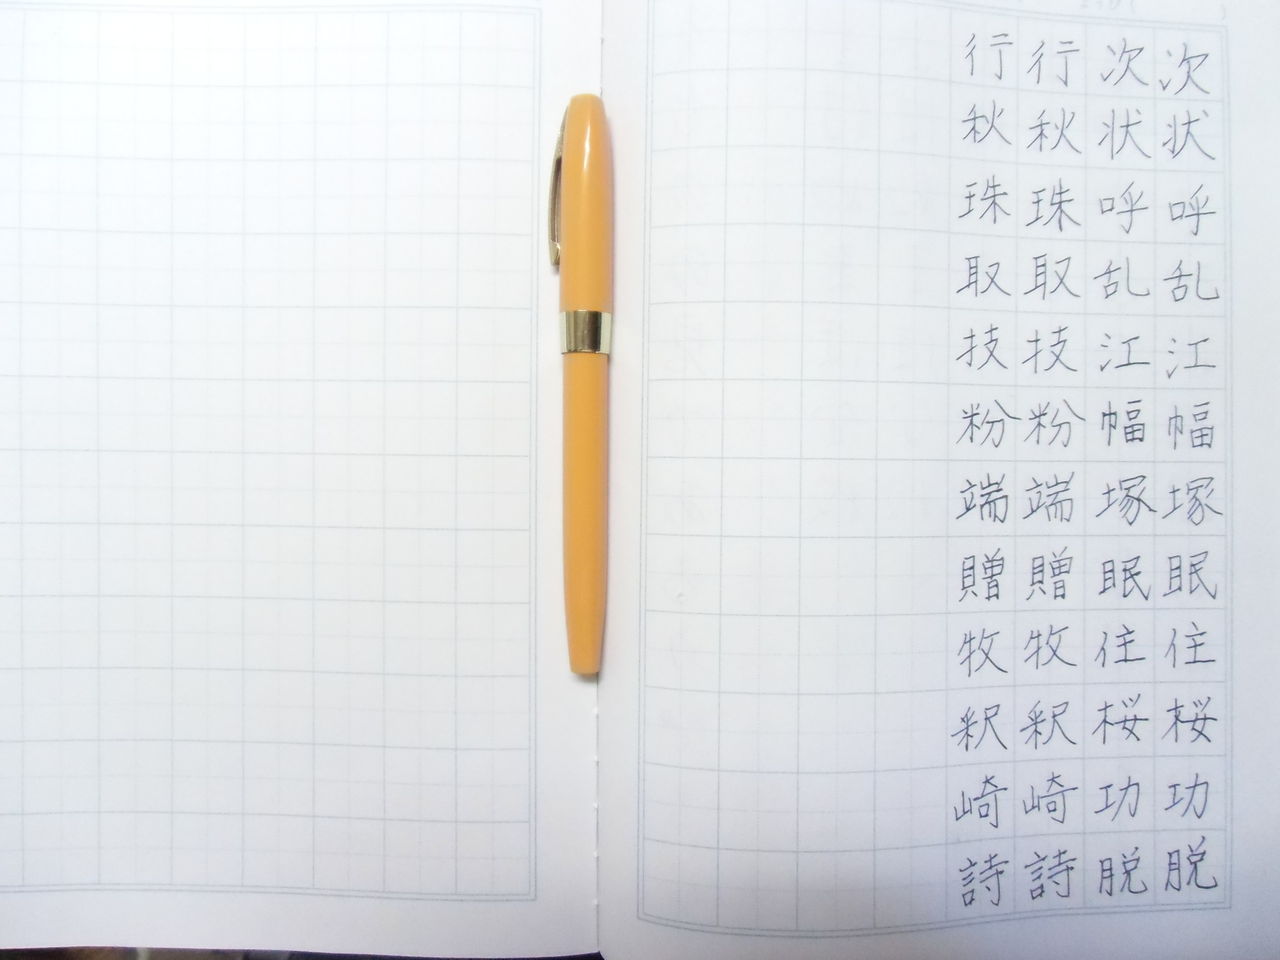 次状呼乱江幅塚眠住桜功脱
次状呼乱江幅塚眠住桜功脱
行秋珠取技粉端贈牧釈崎詩
行秋珠取技粉端贈牧釈崎詩